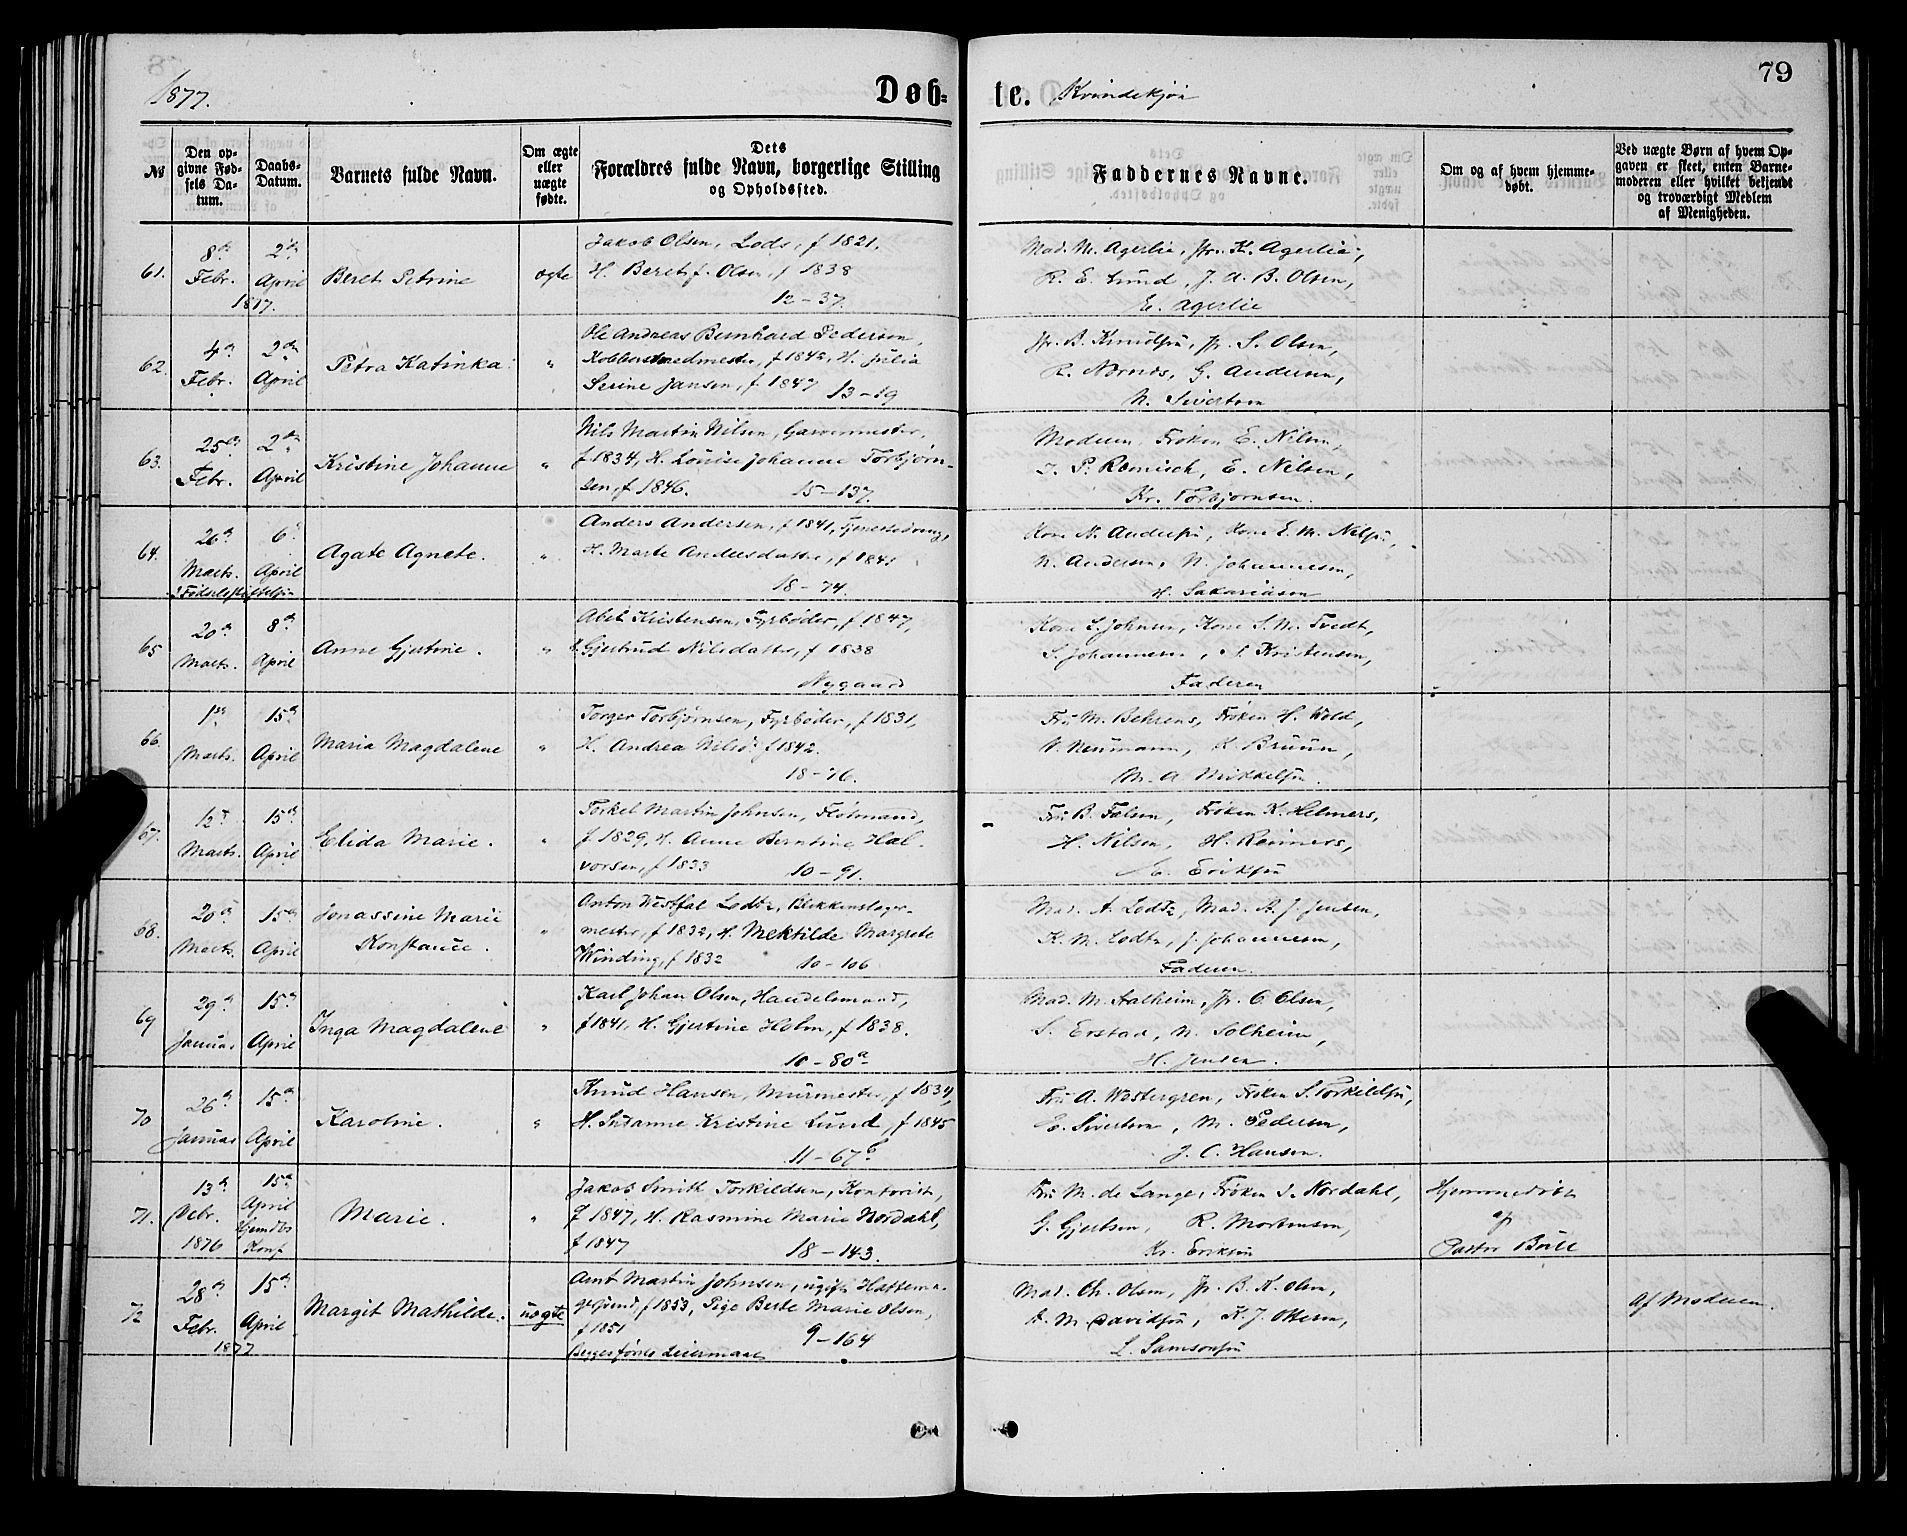 1877.
Døb-
te. Kvindekjön
79
№
Den opgivne Fødsels Datum.
Daabs-Datum.
Barnets fulde Navn.
Om ægte eller uægte fødte.
Dets Forældres fulde Navn, borgerlige Stilling og Opholdssted.
Faddernes Navne.
Om og af hvem hjemmedøbt.
Ved uægte Børn af hvem Opgaven er skeet, enten Barnemoderen eller hvilket bekjendt og troværdigt Medlem af Menigheden.
61. 8de Febr. 2den April 1877. Beret Petrine ægte
Jakob Olsen, Lods, f 1821.
H. Beret f. Olsen, f 1838
12-37.
Mad. M. Agerlie, Jfr. K. Agerlie,
R. E. Lund, J. A. B. Olsen,
E. Agerlie
62. 4de Febr. 2den April Petra Katinka "
Ole Andreas Bernhard Pedersen,
Kobbersmedmester, f 1842, H. Julia
Serine Jansen, f. 1847 13-19
Jfr. B. Knudsen, Jfr. S. Olsen,
R. Nornes, G. Andersen,
N. Sivertsen
63. 25de Febr. 2den April Kristine Johanne "
Nils Martin Nilsen, Garvermester,
f 1834, H. Louise Johanne Torbjørn-
sen, f 1846. 15-137
Moderen, Frøken E. Nilsen,
P. Remisch, E. Nilsen,
Kr. Torbjørnsen.
64. 26de Marts. 6te April Agate Agnete. "
i Fødselsstiftelsen
Anders Andersen, f 1841, Tjenestedreng,
H. Marte Andersdatter, f 1841
18-74.
Kone N. Andersen, Kone E. M. Nilsen,
N. Andersen, N. Johannesen,
H. Sakariasen
65 20de Marts. 8de April Anne Gjertine. "
Abel Kristensen, Fyrbøder, f 1847,
H. Gjertrud Nilsdatter, f 1838
Nygaard
Kone L. Johnsen, Kone S. M. Tvedt,
S. Johannesen, N. Kristensen,
Faderen
66. 1ste Marts. 15de April Maria Magdalene "
Torger Torbjørnsen, Fyrbøder, f 1831,
H. Andrea Nilsd. f 1842.
18-76.
Fru M. Behrens, Frøken H. Wold,
V. Neumann, K. Bruun,
M. A. Mikkelsen.
67. 12te Marts. 15de April Elida Marie. "
Torkel Martin Johnsen, Fløtmand,
f 1829, H. Anne Berntine Hal-
vorsen, f 1833 10-91.
Fru B. Falsen, Frøken K. Helmers,
H. Nilsen, H. Reimers,
E. Eriksen
68. 20de Marts. 15de April Jonassine Marie
Konstance. "
Anton Westfal Lodtz, Blikkenslager-
mester, f 1832, H. Mektilde Margrete
Winding, f 1832 10-106
Mad. A. Lodtz, Mad. A. J. Jensen,
K. M. Lodtz, J. Johannesen,
Faderen.
69 29de Januar 15de April Inga Magdalene "
Karl Johan Olsen, Handelsmand,
f 1841, H. Gjertine Holm, f 1838
10-80a
Mad. M. Stalheim, Jfr. O. Olsen,
S. Erstad, N. Solheim,
H. Jensen.
70 26de Januar 15de April Karoline. "
Knud Hansen, Murmester, f 1834,
H. Susanne Kristine Lund, f 1845
11-67b
Fru A. Westergren, Frøken S. Torkildsen,
E. Sivertsen, M. Pedersen,
J. C. Hansen.
71. 13de Debr. 1876 15de April Hjemdbs Konf Marie. "
Jakob Smith Torkildsen, Kontorist,
f 1847, H. Rasmine Marie Nordahl,
f 1847 18-143.
Fru M. de Lange, Frøken I. Nordahl,
G. Gjertsen, R. Mortensen,
Kr. Eriksen
Hjemmedøbt
af
Pastor Bøll
72 28de Febr. 15de April 1877 Margit Mathilde. uægte
Arnt Martin Johnsen, ugift Hattema-
gersvend, f 1853, Pige Berte Marie Olsen,
f 1851 9-164
Begges første Leiermaal
Mad. Ch. Olsen, Jfr. B. K. Olsen,
A. M. Davidsen, K. J. Olsen,
L. Samsonsen
Af Moderen.